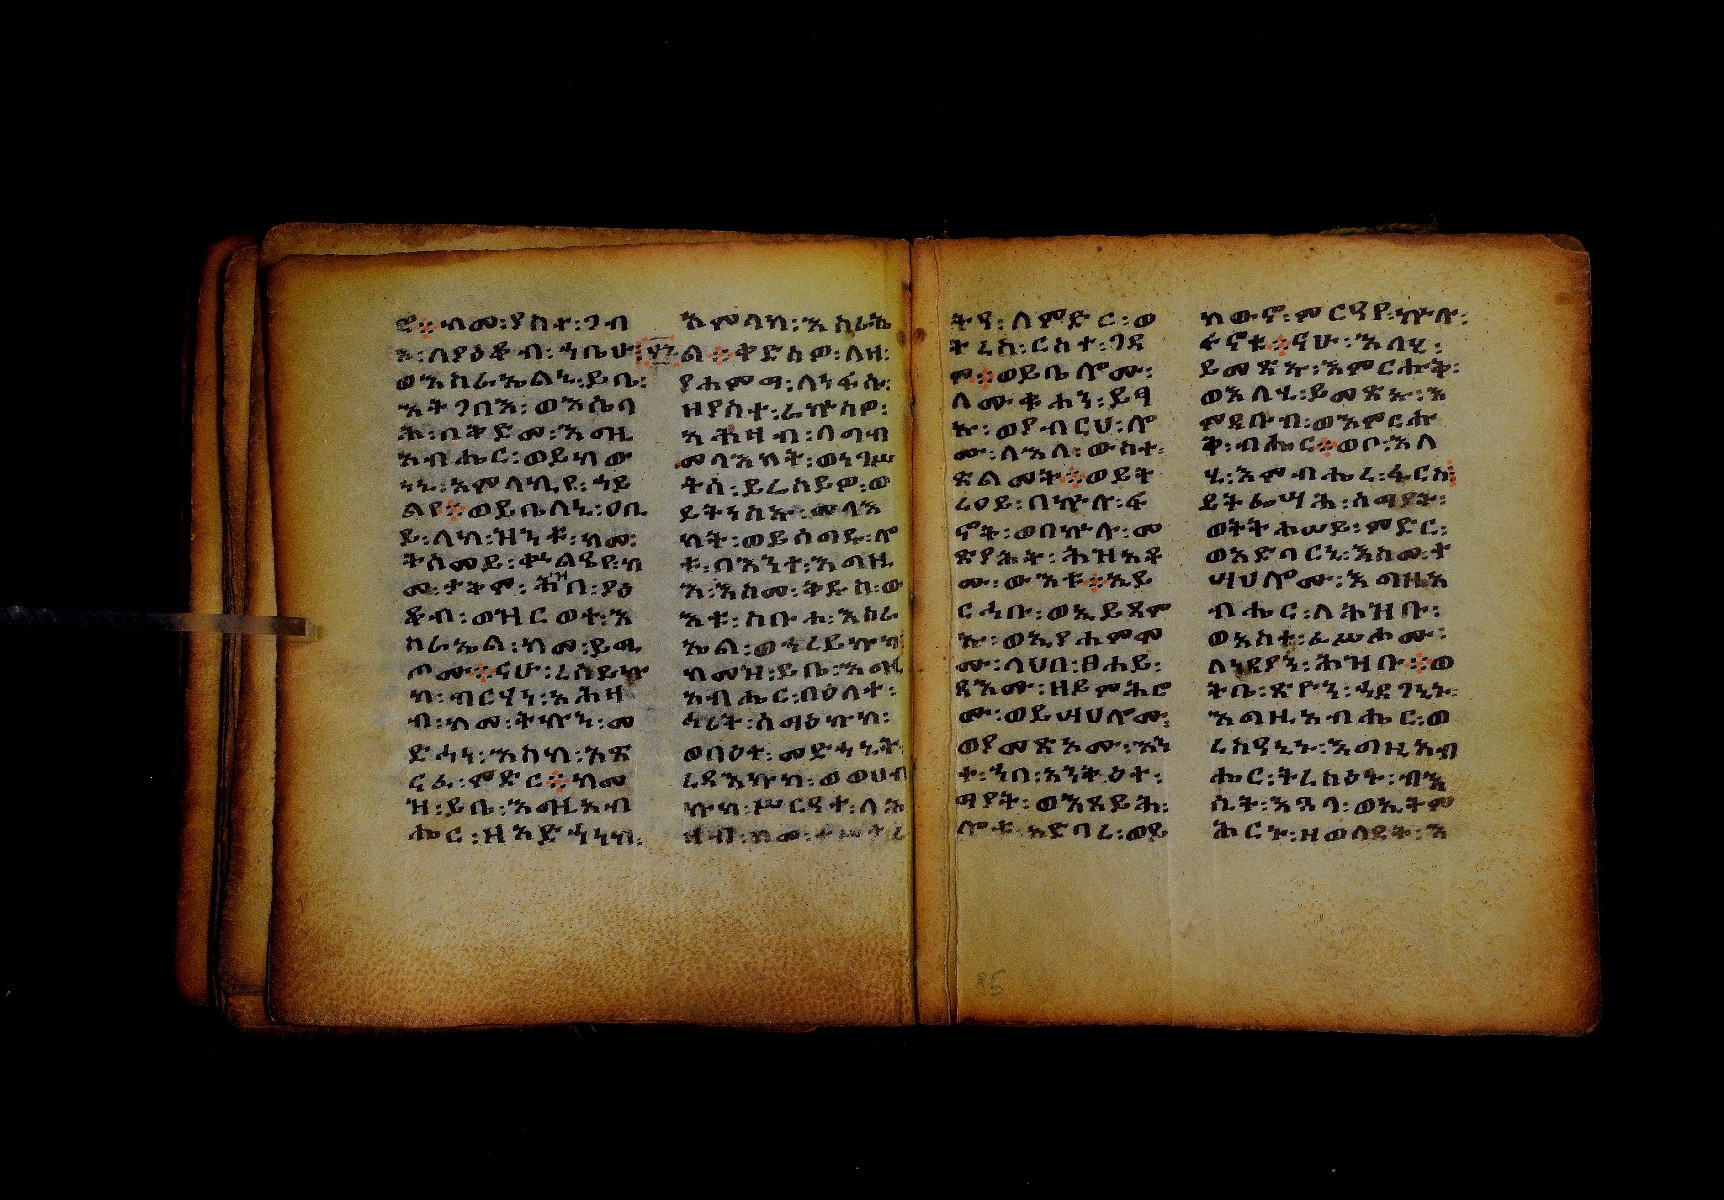 ዎ፨ብመ፡ያስተ፡ጋብ
ኦ፡ለያዕቆብ፡ኀቤሁ፡
ወእስራኤልኒ፡ይቤ፡
እትጋባእ፡ወእሴባ
ሕ፡በቅድመ፡እግዚ
አብሔር፡ወይከው
ነኒ፡አምላኪየ፡ኀይ
ልየ፨ወይቤለኒ፡ዐቢ
ይ፡ለከ፡ዝንቱ፡ከመ፡
ትስመይ፡ቍልዔየ፡ከ
መ፡ታቅም፡ሕዝበ፡ያዕ
ቆብ፡ወዝርወተ፡እ
ስራኤል፡ከመ፡ይጫ
ጦሙ፨ናሁ፡ረሰይኩ
ከ፡ብርሃነ፡አሕዛ
ብ፡ከመ፡ትኩን፡መ
ድኀነ፡እስከ፡አጽ
ናፈ፡ምድር፨ከመ
ዝ፡ይቤ፡እግዚአብ
ሔር፡ዘአድኀነከ፡
አምላከ፡እስራኤ
ል፨ቀድስዎ፡ለዘ፡
ያሐምማ፡ለነፍሱ፡
ዘያስተ፡ራኵስዎ፡
አሕዛብ፡በግብ
ወነገሥ
ትሰ፡ይሬስይዎ፡ወ
ይትነስኡ፡መላእ
ክት፡ወይሰግዱ፡ሎ
ቱ፡በእንተ፡እግዚ
አ፡እስመ፡ቅዱስ፡ው
እቱ፡ስቡሐ፡እስራ
ኤል፡ወኀረይኩከ
ከመዝ፡ይቤ፡እግዚ
አብሔር፡በዕለተ፡
ኀሪት፡ሰማዕኩከ፡
ወበዕተ፡መድኀኒት፡
ረዳእኩከ፡ወወሀብ
ኩከ፡ሥርዓተ፡ለሕ
ዛብ፡ከመ፡ተሥተረ
ትዓ፡ለምድር፡ወ
ትረስ፡ርስተ፡ገዳ
ም፨ወይቤሎሙ፡
ለሙቁሐን፡ይፃ
ኡ፡ወያብርሁ፡ሎ
ሙ፡ለእለ፡ውስተ፡
ጽልመት፨ወይት
ረዐይ፡በኵሉ፡ፍ
ኖት፡ወበኵሉ፡መ
ጽያሕት፡
ሙ፡ውእቱ፨ኢይ
ርኀቡ፡ወኢይጸም
ኡ፡ወኢያሐምሞ
ሙ፡ላህበ፡ፀሐይ፡
ዳእሙ፡ዘይምሕሮ
ሙ፡ወይሣህሎሙ፡
ወያመጽእሙ፡እን
ተ፡ኀበ፡
ማያት፡ወእጸይሕ፡
ሎቱ፡አድባረ፡ወይ
ከውኖ፡ምርዓየ፡ኵሉ፡
ፍኖቱ፨ናሁ፡እሉሂ፡
ይመጽኡ፡እምርሑቅ፡
ወእለሂ፡ይመጽኡ፡እ
ምደቡብ፡ወእምርሑ
ቅ፡ብሔር፨ወቦ፡እለ
ሂ፡እምብሔረ፡ፋርስ፡
ይትፌሣሕ፡ሰማያት፡
ወትትሐሠይ፡ምድር፡
ወአድባርኒ፡እስመ፡ተ
ሣህሎሙ፡እግዚአ
ብሔር፡ለሕዝቡ፡
ወአስተ፡ፈሥሖሙ፡
ለነዳያነ፡ሕዝቡ፨ወ
ትቤ፡ጽዮን፡ኀደገኒኑ፡
እግዚአብሔር፡ወ
ረስዓኒኑ፡እግዚአብ
ሔር፡ትረስዕኑ፡ብእ
ሲት፡እጓላ፡ወኢትም
ሕርኑ፡ዘወለደት፡እ